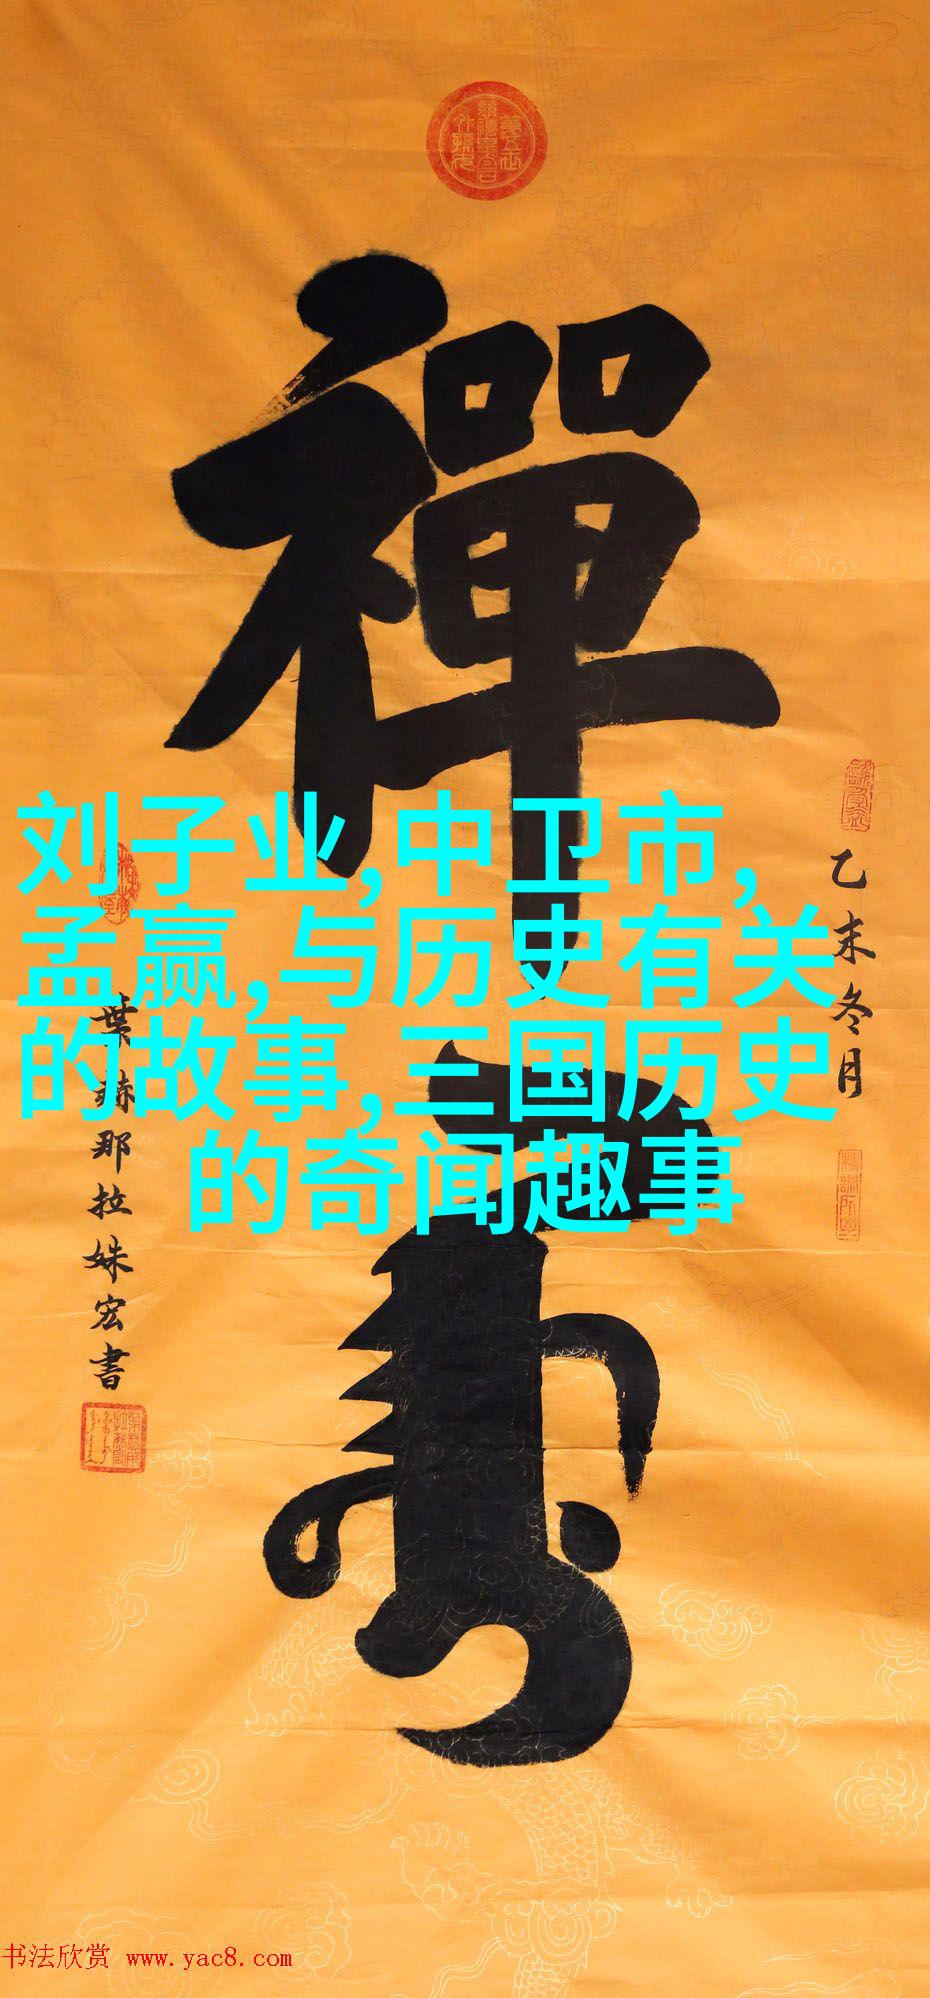 禪
乙未冬月
葉赫那拉姝宏書
刘子业,中卫市,
孟赢,与历史有关
的故事,三国历史
的奇闻趣事
书法欣赏 www.yac8.com